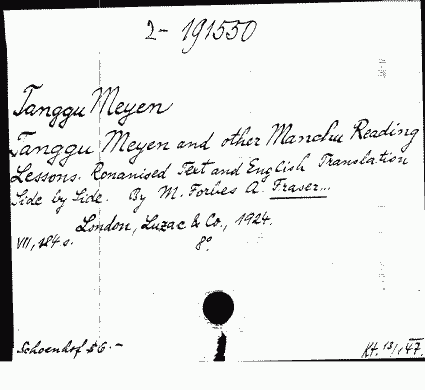 2-191550
Tanggu Meyen
Tanggu Meyen and other Manchu Reading
Lessons. Romanised Text and English Translation
Side by Side. By M. Forbes A. Fraser...
London, Luzac & Co., 1924.
VII, 184 s. 8°
Schoenhof $6.- Kt. 13/I 47.